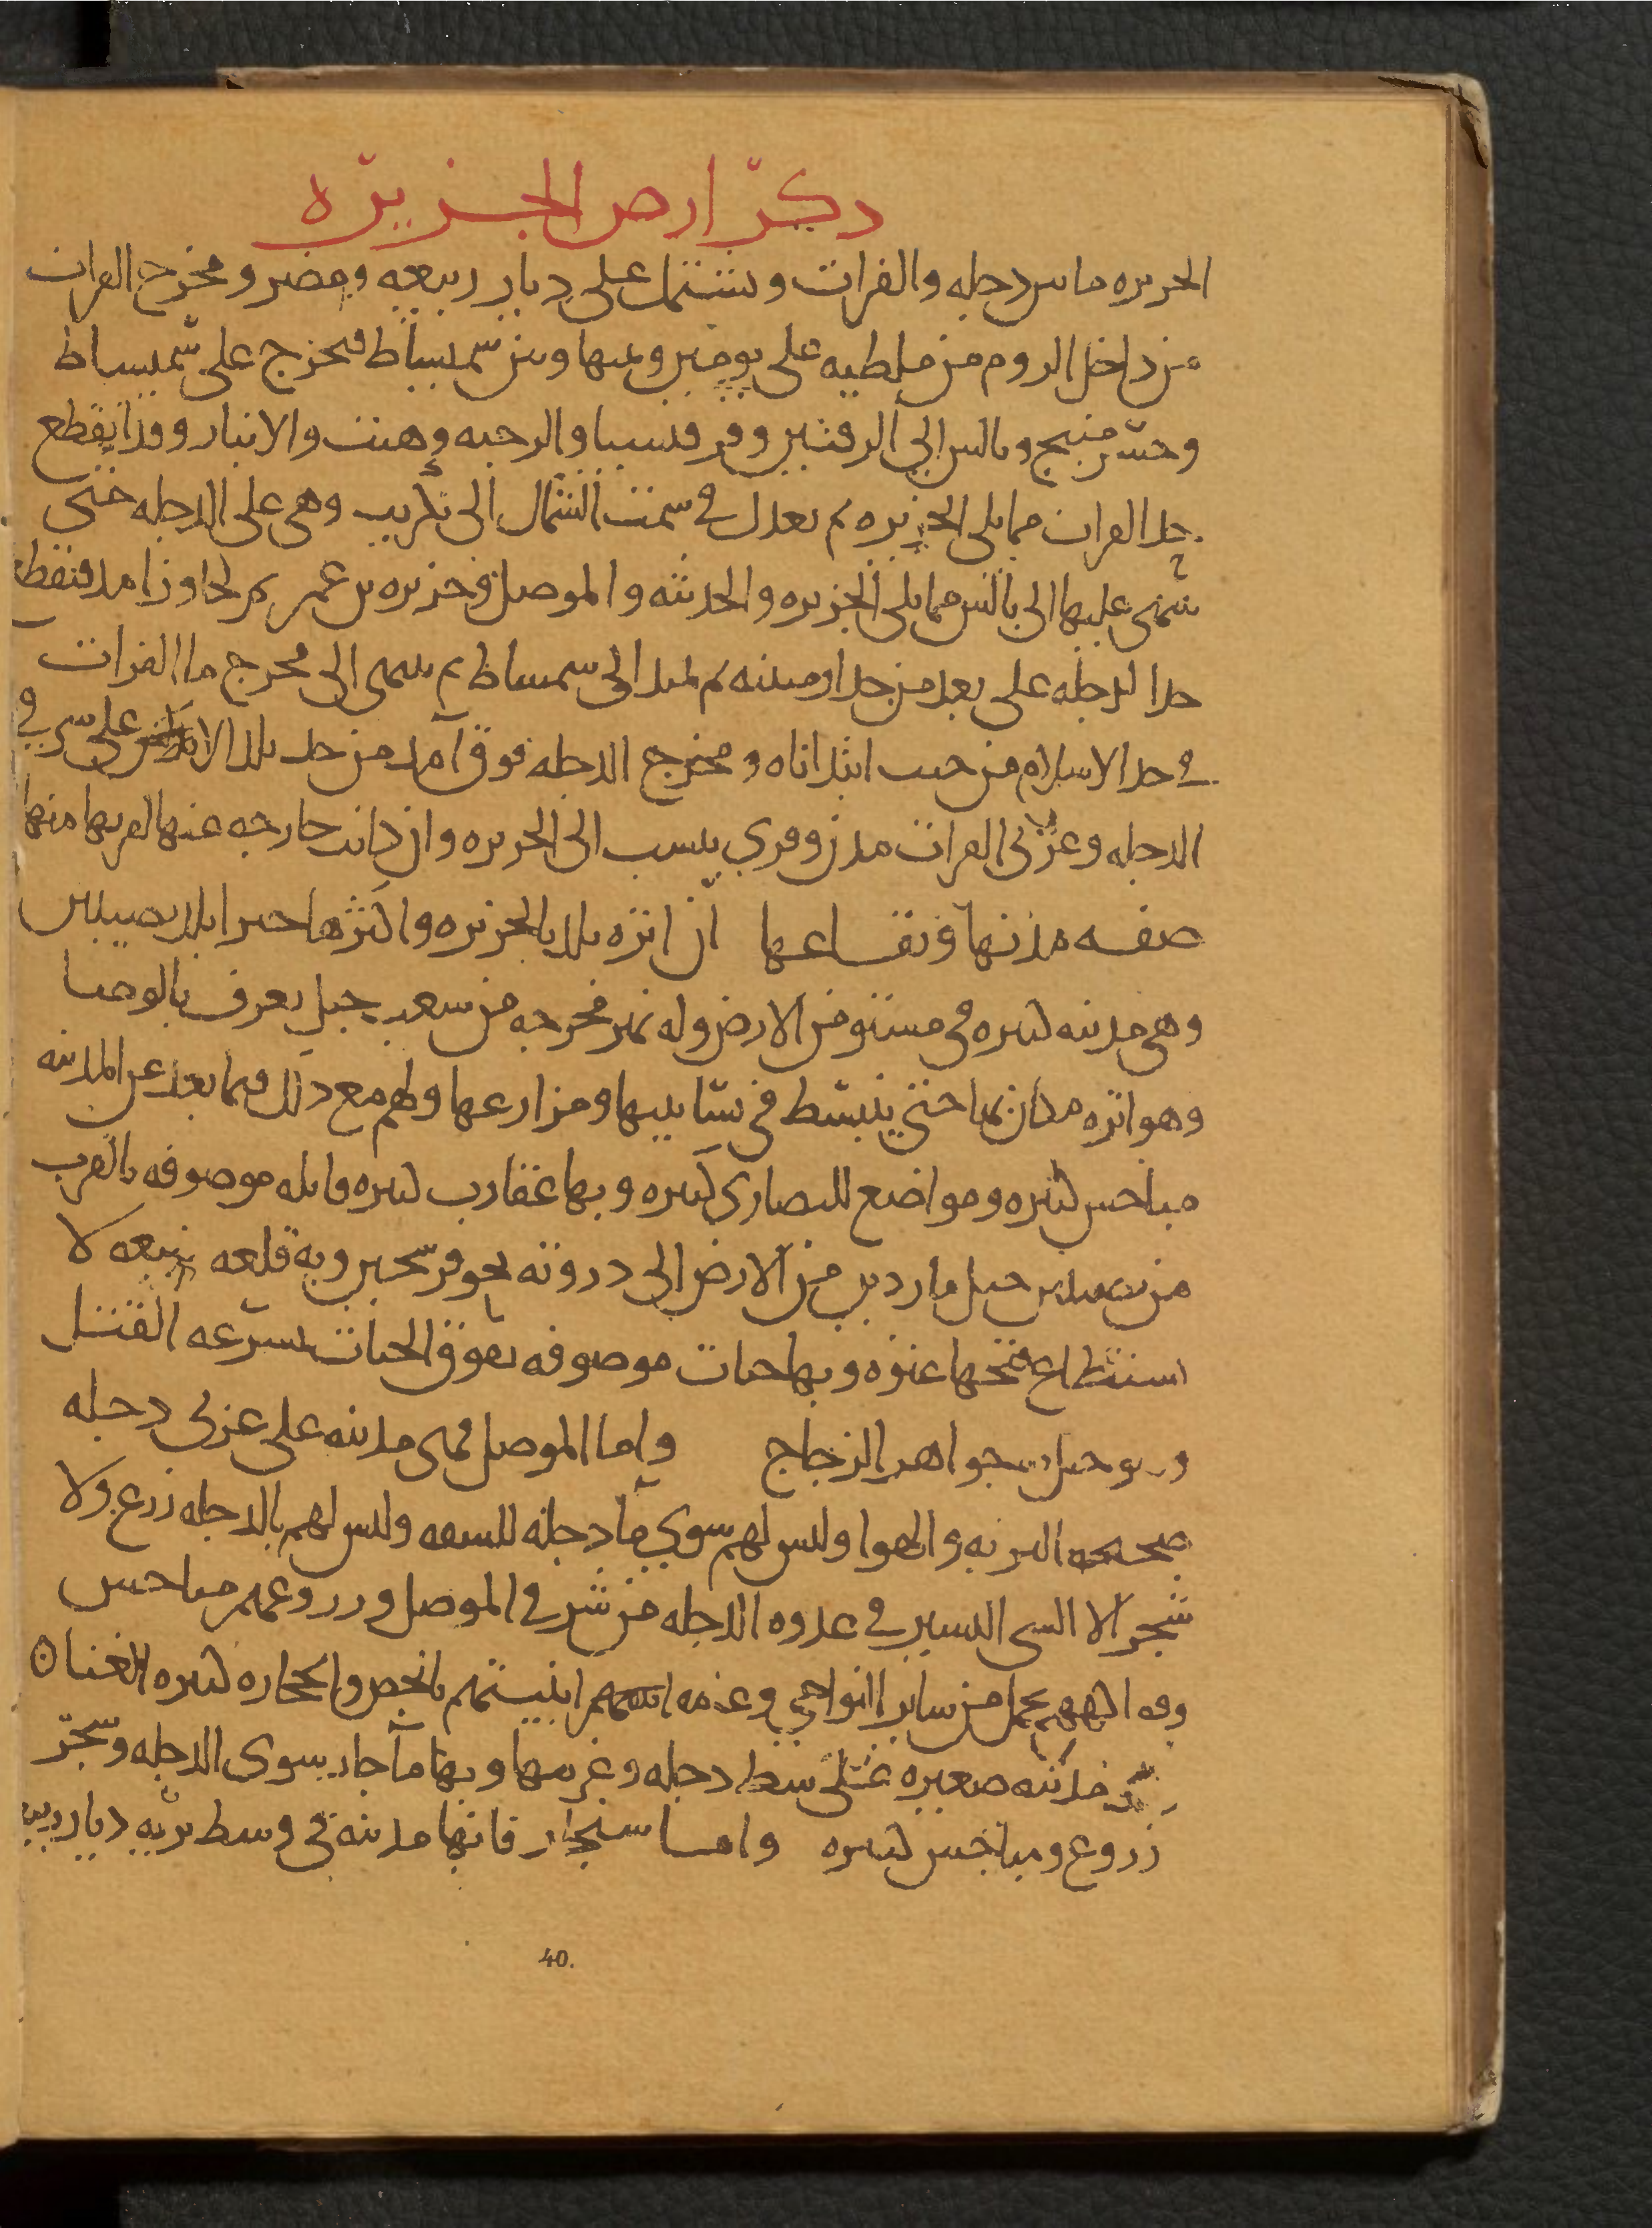 ذكر ارض الجزيره
الجزيره ما بين دجله والفرات وتشتمل على ديار ربيعه ومضر ومخرج الفرات
من داخل الروم من ملطيه على يومين وبينها وبين سميساط فيخرج على سميساط
وجسر منبج وبالس الى الرقتين وقرقيسيا والرحبه وهيت والانبار وقد انقطع
حد الفرات مما يلى الجزيره ثم يعدل في سمت الشمال الى تكريت وهى على الدجله حتى
ينتهى عليها الى بالس مما يلى الجزيره والحديثه والموصل وجزيره بن عمر ثم يجاوز امد فينقطع
حد الدجله على بعد من حد ارمينيه ثم يمتد الى سميساط ثم ينتهى الى مخرج ما الفرات
في حد الاسلام من حيث ابتداناه ومخرج الدجله فوق آمد من حد بلد على شرقي
الدجله وغربى الفرات مدن وقرى ينسب الى الجزيره وان كانت خارجه عنها لقربها منها
صفه مدنها وبقاعها ان انزه بلد بالجزيره واكثرها خيرا بلد نصيبين
وهى مدينه كبيره في مستو من الارض وله نهر مخرجه من شعب جبل يعرف بالوصا
وهو انزه مكان بها حتى ينبسط في بساتينها ومزارعها ولهم مع ذلك فيما بعد عن المدينه
مباخس كثيره ومواضع للنصارى كثيره وبها عقارب كثيره قاتله موصوفه بالقرب
من نصيبين جبل ماردين من الارض الى دروته نحو فرسخين وبه قلعه منيعه لا
استطاع فتحها عنوه وبها حيات موصوفه تفوق الحيات بسرعه القتل
جبل بجواهر الزجاج واما الموصل فهى مدينه على غربى دجله
صحيحه التربه والهوا وليس لهم سوى ما دجله للسقه وليس لهم بالدجله زرع ولا
شجر الا الشى اليسير في عدوه الدجله من شرقي الموصل وزروعهم مباخس
يحمل من ساير النواحى ابنيتهم بالجص والحجاره كثيره الغنا ٥
مدينه صغيره على شط دجله وغربيها وبها ما جار سوى الدجله وشجر
زروع ومباخس كثيره واما سنجار فانها مدينه في وسط بريه ديار ربيعه
40.